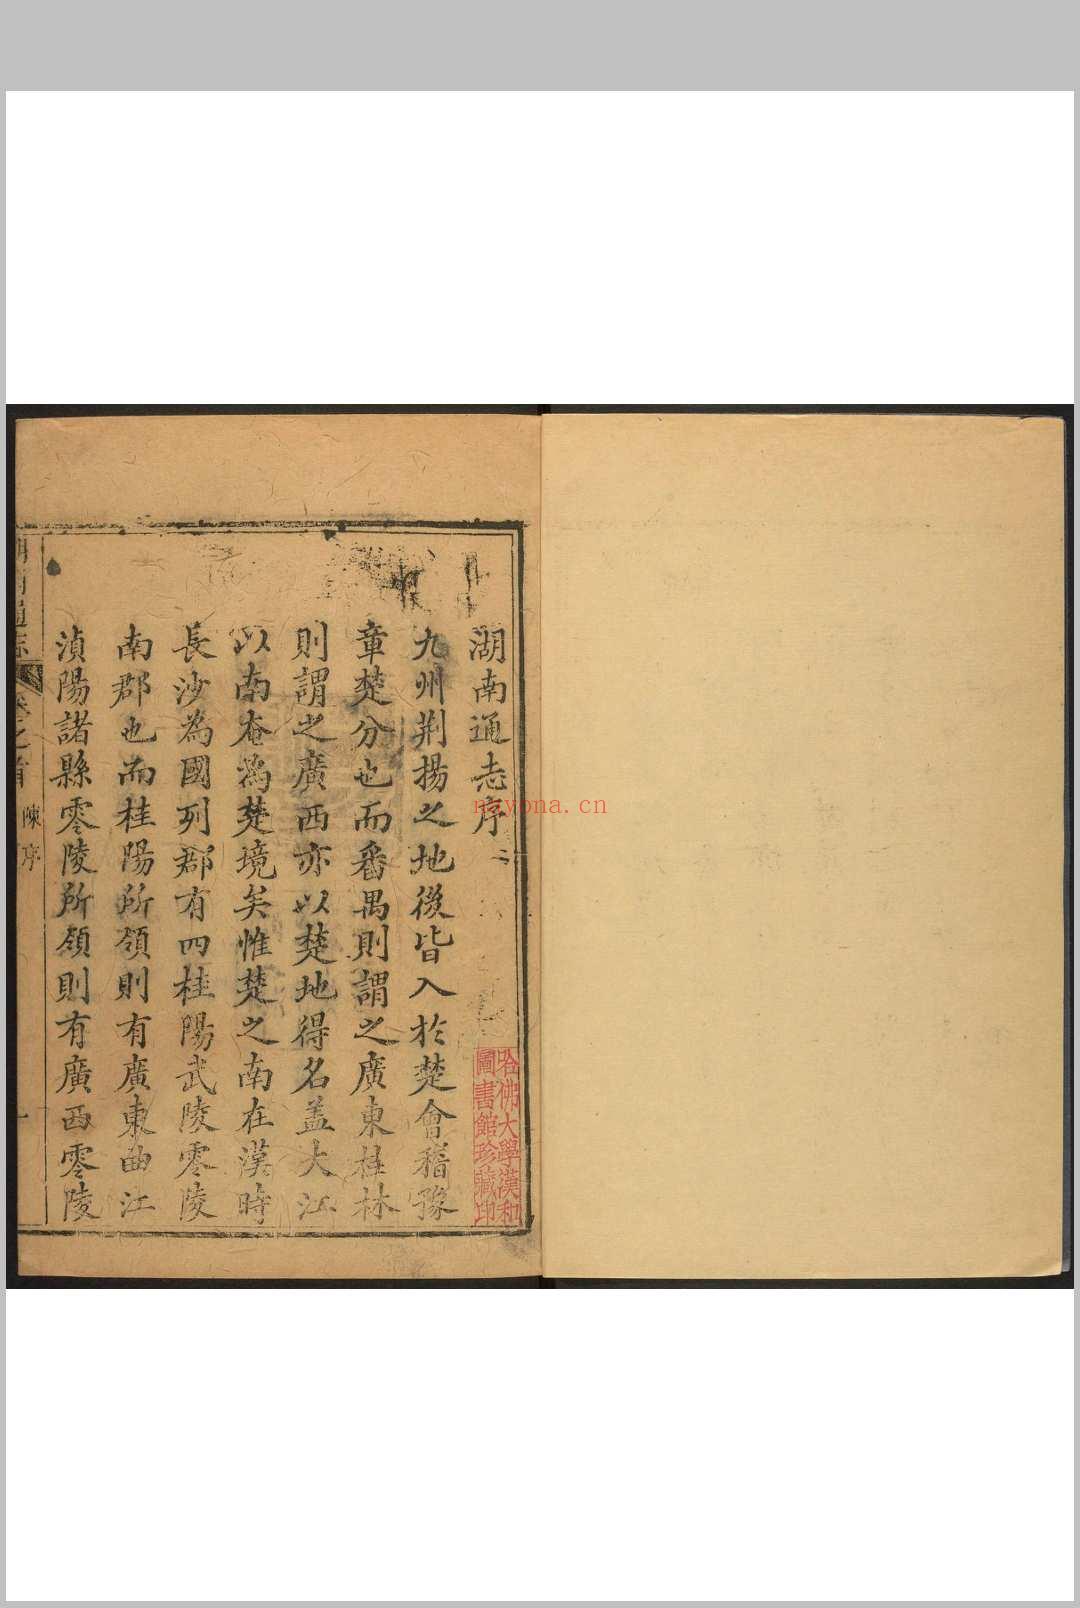 湖南通志序二
九州荆揚之地後皆入於楚會稽豫
章楚分也而番禺則謂之廣東桂林
則謂之廣西亦以楚地得名盖大江
以南奄為楚境矣惟楚之南在漢時
長沙為國列郡有四桂陽武陵零陵
南郡也而桂陽所領則有廣東曲江
湞陽諸縣零陵所領則有廣西零陵
湖南通志
卷之首
陳序
一
哈佛大學漢和
圖書館珍藏印
nzyona.cn